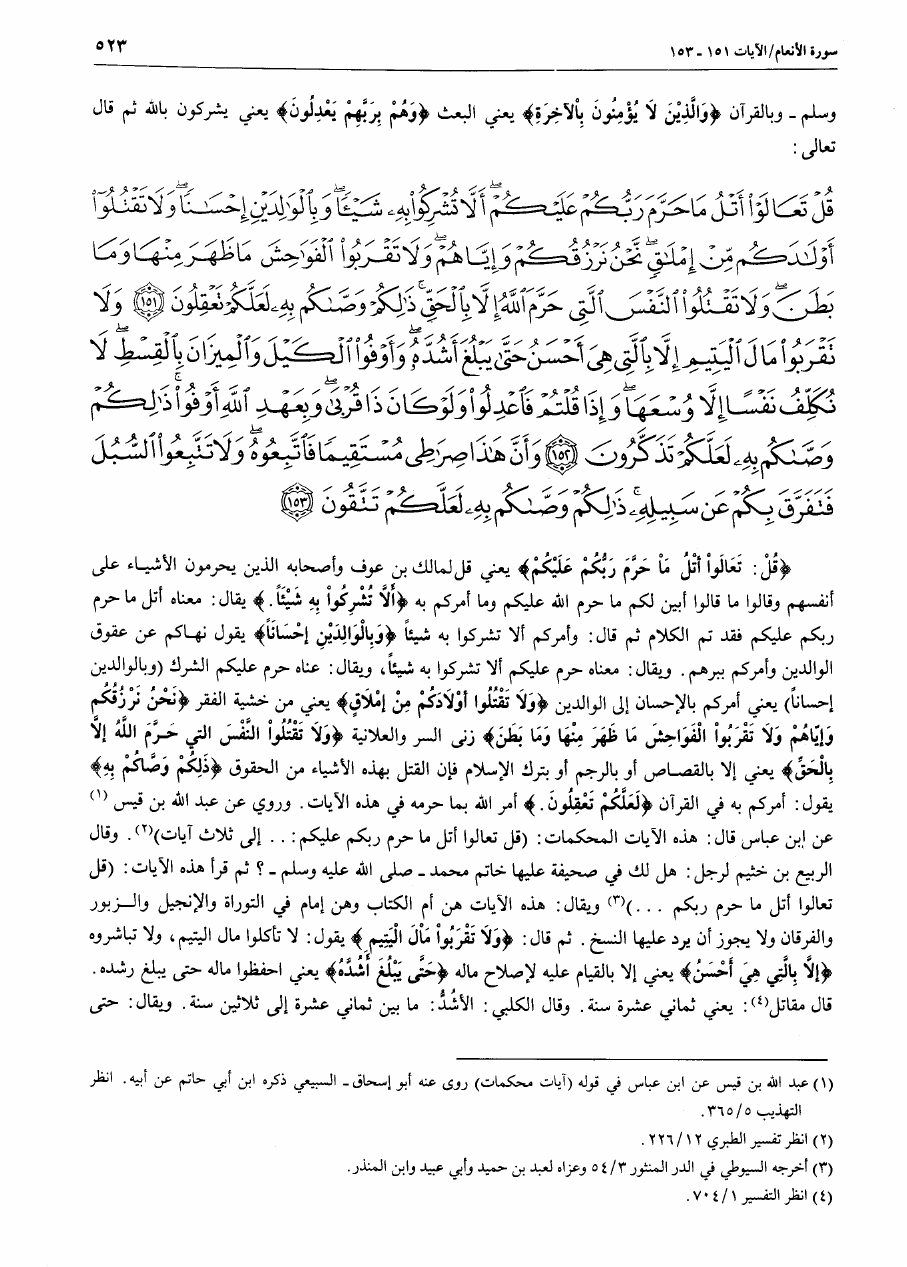 سورة الأنعام/الآيات ١٥١ - ١٥٣
٥٢٣
وسلم - وبالقرآن ﴿وَالَّذِيْنَ لَا يُؤْمِنُونَ بِالْآخِرَةِ﴾ يعني البعث ﴿وَهُمْ بِرَبِّهِمْ يَعْدِلُونَ﴾ يعني يشركون بالله ثم قال
تعالى :
قُلْ تَعَالَوْا۟ أَتْلُ مَا حَرَّمَ رَبُّكُمْ عَلَيْكُمْ ۖ أَلَّا تُشْرِكُوا۟ بِهِۦ شَيْـًٔا ۖ وَبِٱلْوَٰلِدَيْنِ إِحْسَـٰنًا ۖ وَلَا تَقْتُلُوٓا۟
أَوْلَـٰدَكُم مِّنْ إِمْلَـٰقٍ ۖ نَّحْنُ نَرْزُقُكُمْ وَإِيَّاهُمْ ۖ وَلَا تَقْرَبُوا۟ ٱلْفَوَٰحِشَ مَا ظَهَرَ مِنْهَا وَمَا
بَطَنَ ۖ وَلَا تَقْتُلُوا۟ ٱلنَّفْسَ ٱلَّتِى حَرَّمَ ٱللَّهُ إِلَّا بِٱلْحَقِّ ۚ ذَٰلِكُمْ وَصَّىٰكُم بِهِۦ لَعَلَّكُمْ تَعْقِلُونَ ﴿١٥١﴾ وَلَا
تَقْرَبُوا۟ مَالَ ٱلْيَتِيمِ إِلَّا بِٱلَّتِى هِىَ أَحْسَنُ حَتَّىٰ يَبْلُغَ أَشُدَّهُۥ ۖ وَأَوْفُوا۟ ٱلْكَيْلَ وَٱلْمِيزَانَ بِٱلْقِسْطِ ۖ لَا
نُكَلِّفُ نَفْسًا إِلَّا وُسْعَهَا ۖ وَإِذَا قُلْتُمْ فَٱعْدِلُوا۟ وَلَوْ كَانَ ذَا قُرْبَىٰ ۖ وَبِعَهْدِ ٱللَّهِ أَوْفُوا۟ ۚ ذَٰلِكُمْ
وَصَّىٰكُم بِهِۦ لَعَلَّكُمْ تَذَكَّرُونَ ﴿١٥٢﴾ وَأَنَّ هَـٰذَا صِرَٰطِى مُسْتَقِيمًا فَٱتَّبِعُوهُ ۖ وَلَا تَتَّبِعُوا۟ ٱلسُّبُلَ
فَتَفَرَّقَ بِكُمْ عَن سَبِيلِهِۦ ۚ ذَٰلِكُمْ وَصَّىٰكُم بِهِۦ لَعَلَّكُمْ تَتَّقُونَ ﴿١٥٣﴾
﴿قُلْ : تَعَالَواْ أَتْلُ مَا حَرَّمَ رَبُّكُمْ عَلَيْكُمْ﴾ يعني قل لمالك بن عوف وأصحابه الذين يحرمون الأشياء على
أنفسهم وقالوا ما قالوا أبين لكم ما حرم الله عليكم وما أمركم به ﴿أَلَّا تُشْرِكُواْ بِهِ شَيْئاً .﴾ يقال : معناه أتل ما حرم
ربكم عليكم فقد تم الكلام ثم قال : وأمركم ألا تشركوا به شيئاً ﴿وَبِالْوَالِدَيْنِ إِحْسَاناً﴾ يقول نهاكم عن عقوق
الوالدين وأمركم ببرهم . ويقال : معناه حرم عليكم ألا تشركوا به شيئاً، ويقال : عناه حرم عليكم الشرك (وبالوالدين
إحساناً) يعني أمركم بالإحسان إلى الوالدين ﴿وَلَا تَقْتُلُوا أَوْلَادَكُمْ مِنْ إِمْلَاقٍ﴾ يعني من خشية الفقر ﴿نَحْنُ نَرْزُقُكُم
وَإِيَّاهُمْ وَلَا تَقْرَبُواْ الْفَوَاحِشَ مَا ظَهَرَ مِنْهَا وَمَا بَطَنَ﴾ زنى السر والعلانية ﴿وَلَا تَقْتُلُواْ النَّفْسَ التي حَرَّمَ اللَّهُ إِلَّا
بِالْحَقِّ﴾ يعني إلا بالقصاص أو بالرجم أو بترك الإسلام فإن القتل بهذه الأشياء من الحقوق ﴿ذَلِكُمْ وَصَّاكُمْ بِهِ﴾
يقول : أمركم به في القرآن ﴿لَعَلَّكُمْ تَعْقِلُونَ .﴾ أمر الله بما حرمه في هذه الآيات . وروي عن عبد الله بن قيس (١)
عن ابن عباس قال : هذه الآيات المحكمات : (قل تعالوا أتل ما حرم ربكم عليكم : . . إلى ثلاث آيات)(٢) . وقال
الربيع بن خثيم لرجل : هل لك في صحيفة عليها خاتم محمد - صلى الله عليه وسلم - ؟ ثم قرأ هذه الآيات : (قل
تعالوا أتل ما حرم ربكم . . .)(٣) ويقال : هذه الآيات هن أم الكتاب وهن إمام في التوراة والإنجيل والزبور
والفرقان ولا يجوز أن يرد عليها النسخ . ثم قال : ﴿وَلَا تَقْرَبُواْ مَالَ الْيَتِيمِ﴾ يقول : لا تأكلوا مال اليتيم، ولا تباشروه
﴿إِلَّا بِالَّتِي هِيَ أَحْسَنُ﴾ يعني إلا بالقيام عليه لإصلاح ماله ﴿حَتَّى يَبْلُغَ أَشُدَّهُ﴾ يعني احفظوا ماله حتى يبلغ رشده .
قال مقاتل(٤) : يعني ثماني عشرة سنة . وقال الكلبي : الأشُدُّ : ما بين ثماني عشرة إلى ثلاثين سنة . ويقال : حتى
(١) عبد الله بن قيس عن ابن عباس في قوله (آيات محكمات) روى عنه أبو إسحاق - السبيعي ذكره ابن أبي حاتم عن أبيه . انظر
التهذيب ٣٦٥/٥ .
(٢) انظر تفسير الطبري ٢٢٦/١٢ .
(٣) أخرجه السيوطي في الدر المنثور ٥٤/٣ وعزاه لعبد بن حميد وأبي عبيد وابن المنذر .
(٤) انظر التفسير ٧٠٤/١ .